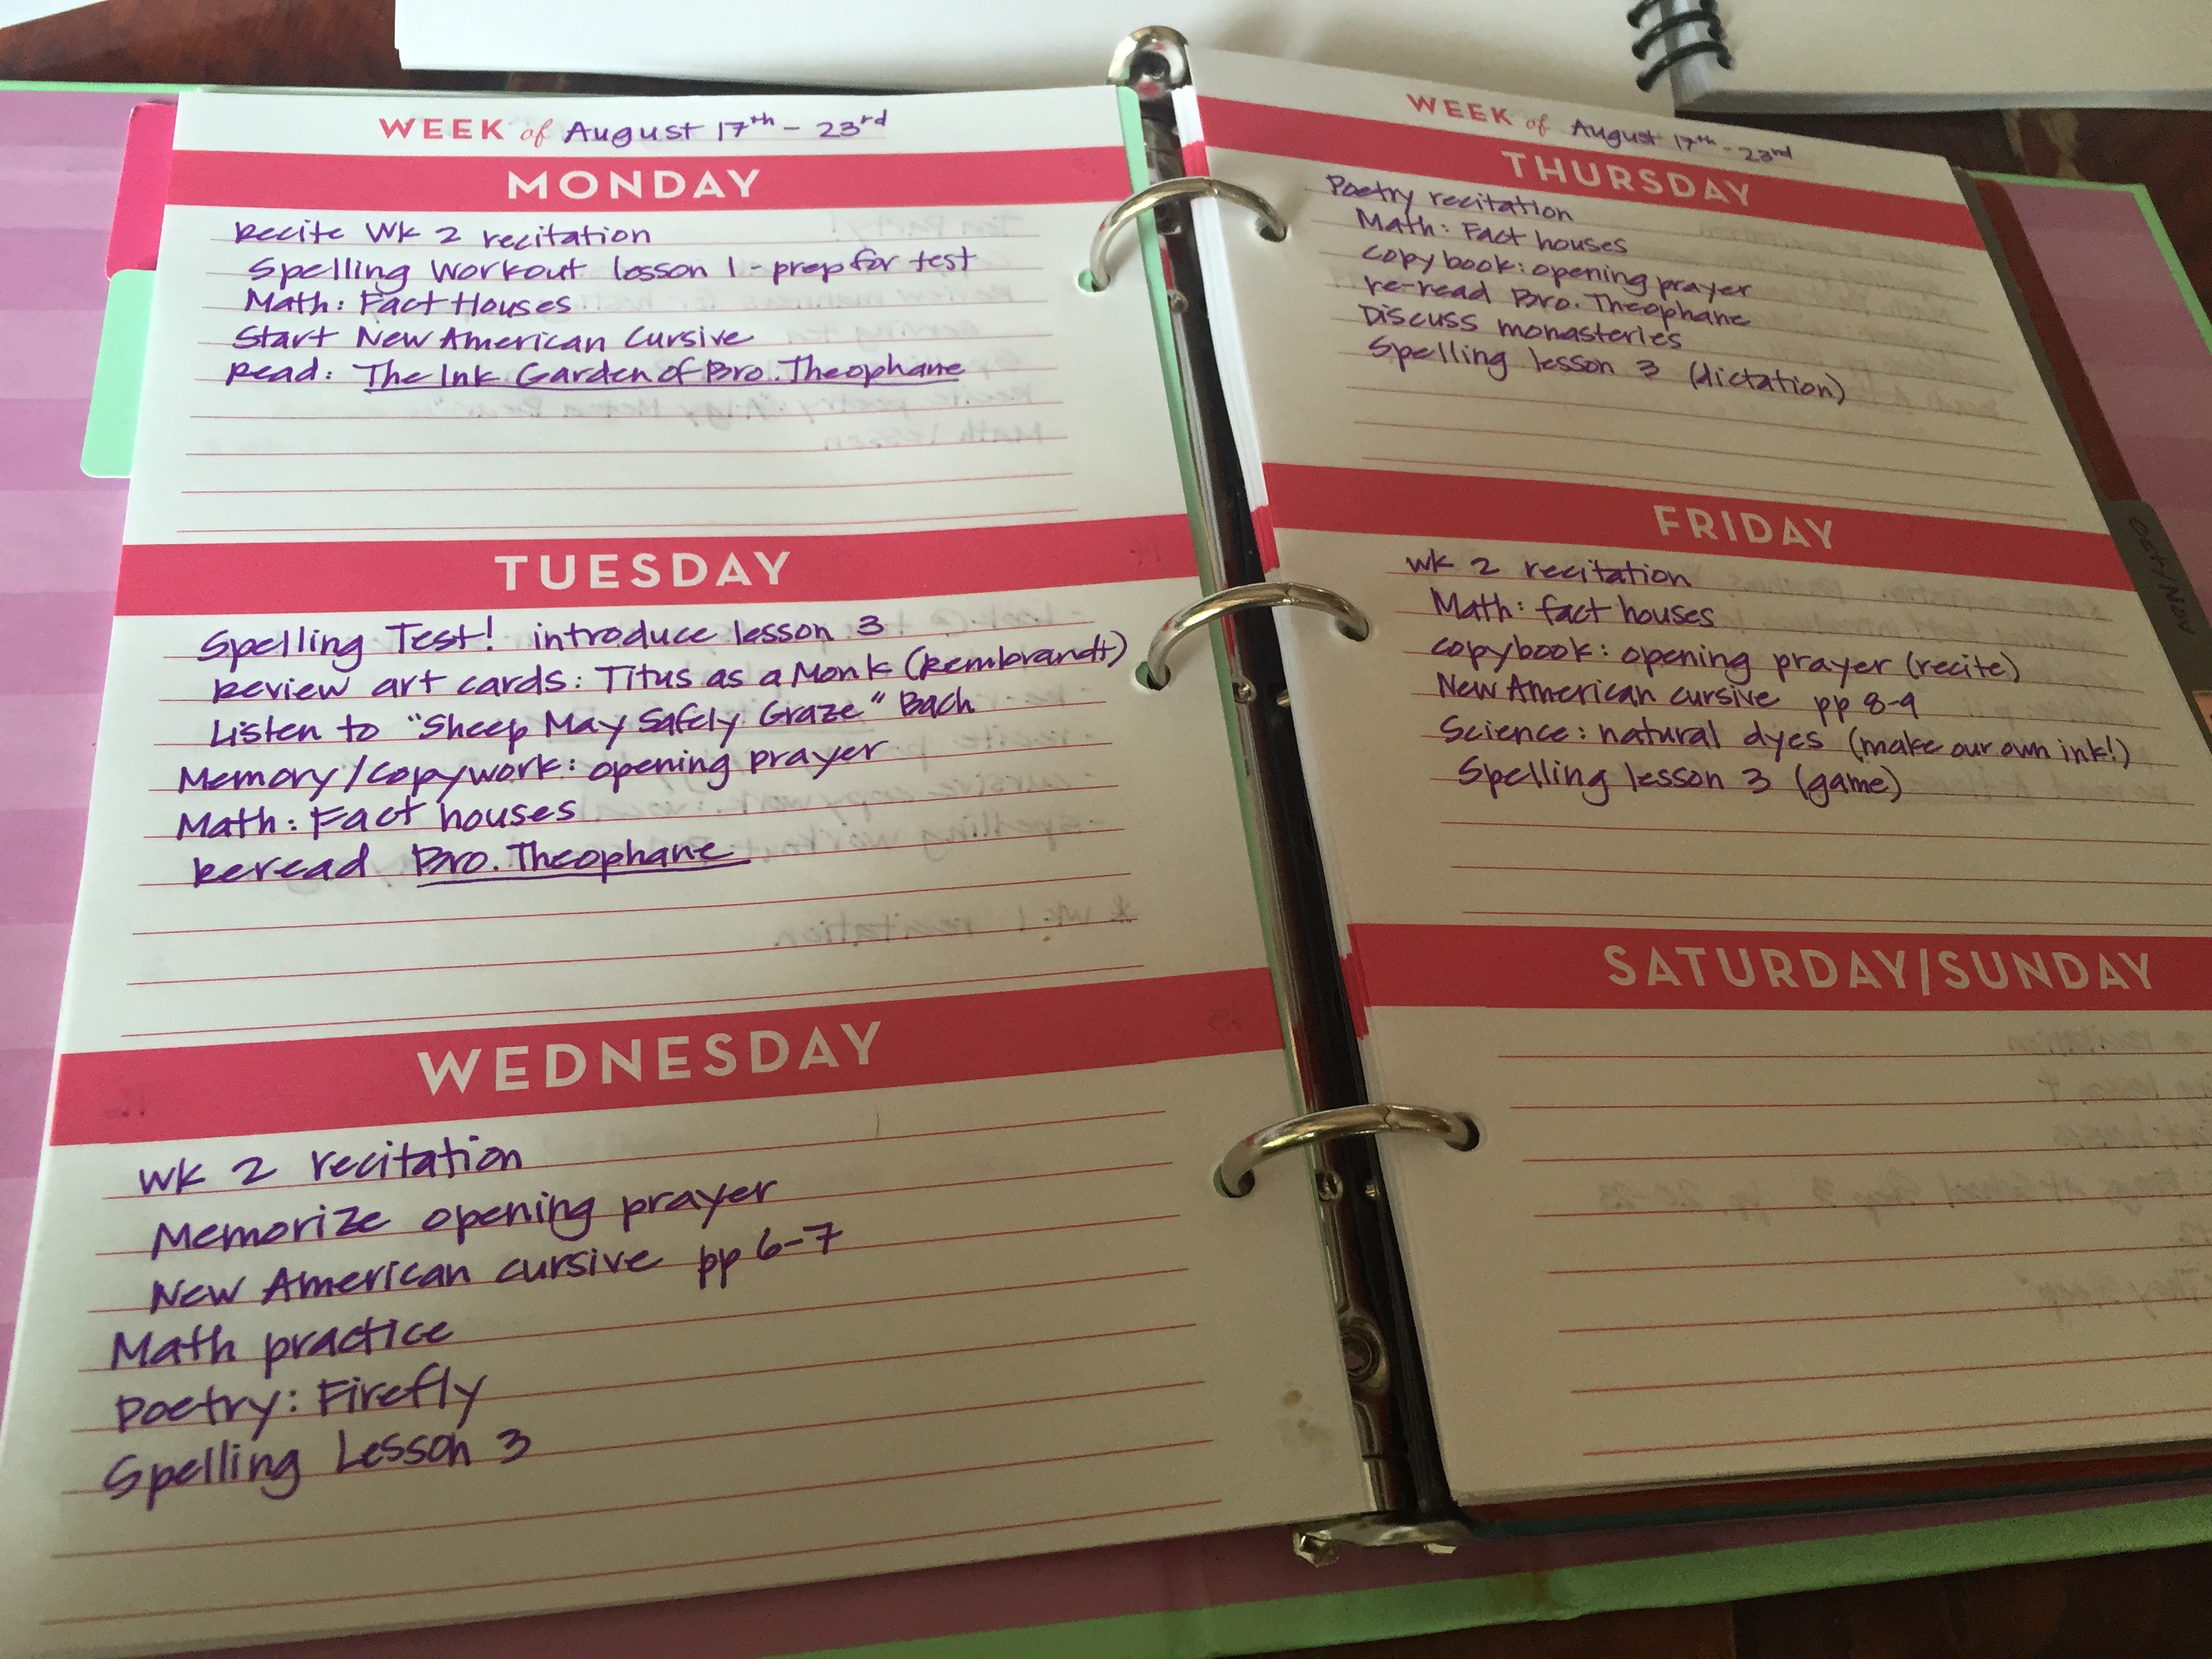 WEEK of August 17th - 23rd
MONDAY
Recite Wk 2 recitation
Spelling Workout lesson 1 - prep for test
Math: Fact Houses
Start New American Cursive
Read: The Ink Garden of Bro. Theophane
TUESDAY
Spelling Test! introduce lesson 3
Review art cards: Titus as a Monk (Rembrandt)
Listen to "Sheep May Safely Graze" Bach
Memory/Copywork: opening prayer
Math: Fact houses
Reread Bro. Theophane
WEDNESDAY
wk 2 recitation
Memorize opening prayer
New American cursive pp 6-7
Math practice
Poetry: Firefly
Spelling Lesson 3
WEEK of August 17th - 23rd
THURSDAY
Poetry recitation
Math: Fact houses
copybook: opening prayer
re-read Bro. Theophane
Discuss monasteries
Spelling lesson 3 (dictation)
FRIDAY
wk 2 recitation
Math: fact houses
copybook: opening prayer (recite)
New American cursive pp 8-9
Science: natural dyes (make our own ink!)
Spelling lesson 3 (game)
SATURDAY/SUNDAY
Oct/Nov